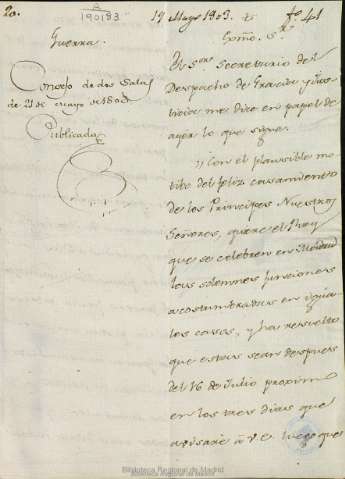 20.
A
190183
19 Mayo 1803.
fo. 41
Guerra.
Consejo de dos Salas
de 21 de mayo de 1803
Publicada
Exmo. Sr.
El Sor. Secretario del
Despacho de Gracia y Jus-
ticia me dice en papel de
ayer lo que sigue.
"Con el plausible mo-
tibo del feliz casamiento
de los Principes Nuestros
Señores, quiere el Rey
que se celebren en Madrid
las solemnes funciones
acostumbradas en igua-
les casos, y ha resuelto
que estas sean despues
del 16 de Julio proximo
en los tres dias que
avisaré á V.E. luego que
Biblioteca Regional de Madrid